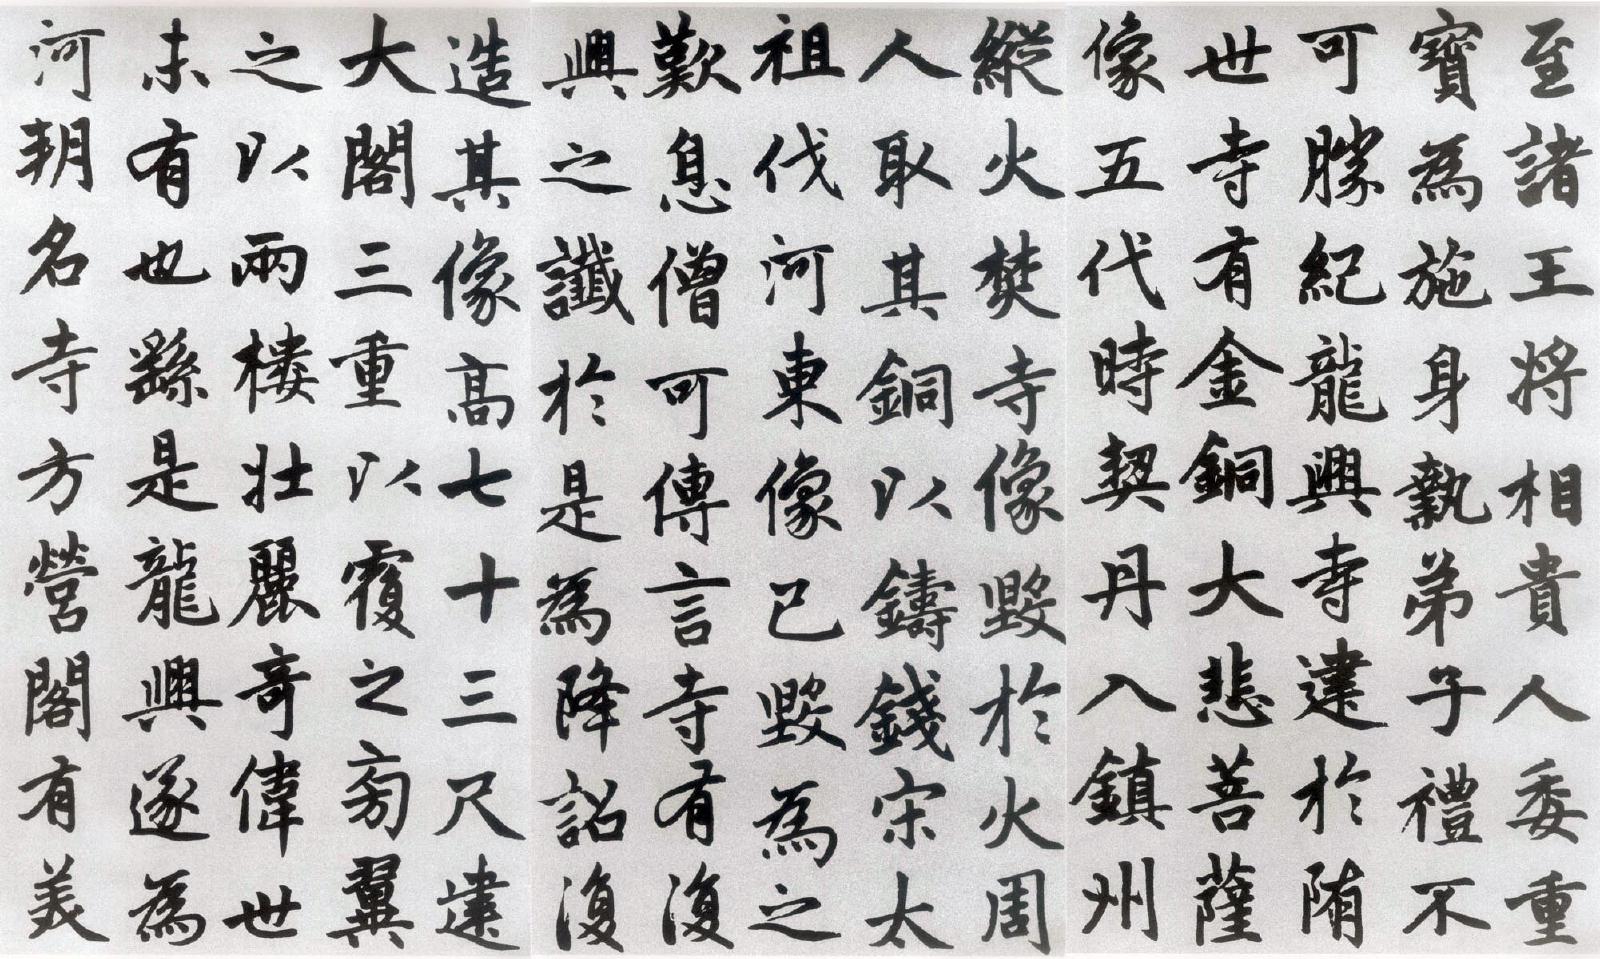 至諸王將相貴人委重
寶為施身執弟子禮不
可勝紀龍興寺建於隋
世寺有金銅大悲菩薩
像五代時契丹入鎮州
縱火焚寺像毀於火周
人取其銅以鑄錢宋太
祖伐河東像已毀為之
歎息僧可傳言寺有復
興之讖於是為降詔復
造其像高七十三尺建
大閣三重以覆之旁翼
之以兩樓壯麗奇偉世
未有也繇是龍興遂為
河朔名寺方營閣有美